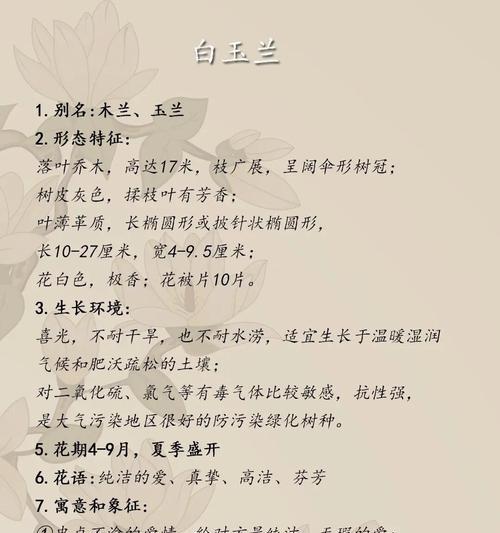 白玉兰
1.别名:木兰、玉兰
2.形态特征:
落叶乔木，高达17米，枝广展，呈阔伞形树冠；
树皮灰色，揉枝叶有芳香；
叶薄革质，长椭圆形或披针状椭圆形，
长10-27厘米，宽4-9.5厘米；
花白色，极香；花被片10片。
3.生长环境:
喜光，不耐干旱，也不耐水涝，适宜生长于温暖湿润
气候和肥沃疏松的土壤；
对二氧化硫、氯气等有毒气体比较敏感，抗性强，
是大气污染地区很好的防污染绿化树种。
5.花期4-9月，夏季盛开
6.花语:纯洁的爱、真挚、高洁、芬芳
7.寓意和象征: